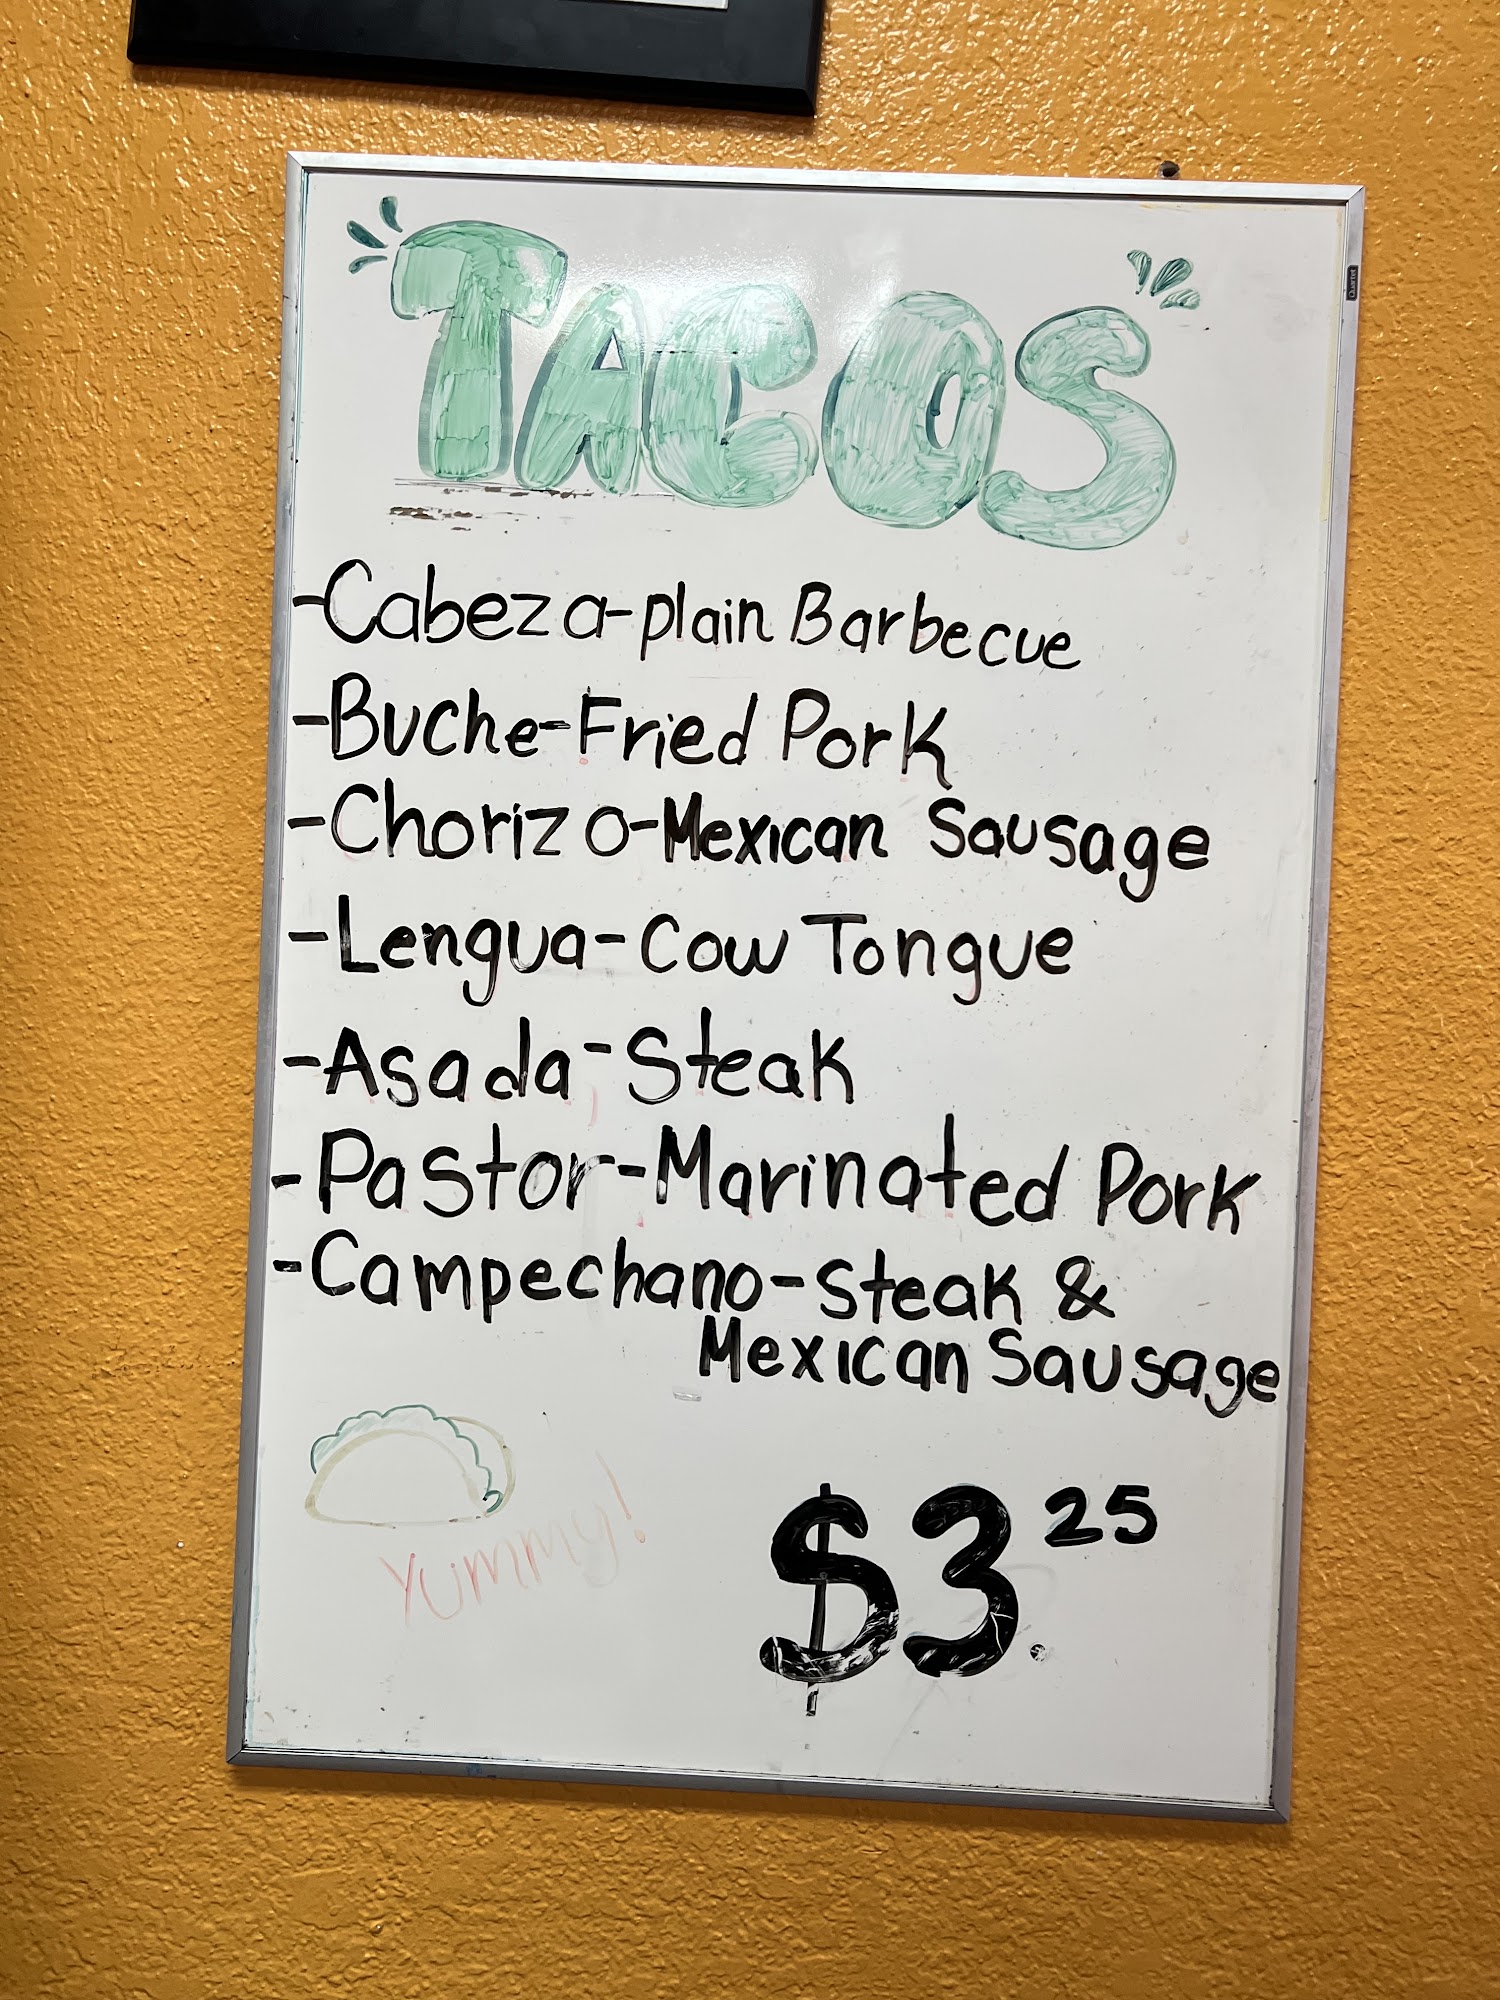 TACOS
Quartet
-Cabeza-plain Barbecue
-Buche-Fried Pork
-Chorizo-Mexican Sausage
-Lengua-Cow Tongue
-Asada-Steak
-Pastor-Marinated Pork
-Campechano-Steak &
Mexican Sausage
Yummy!
$3.25